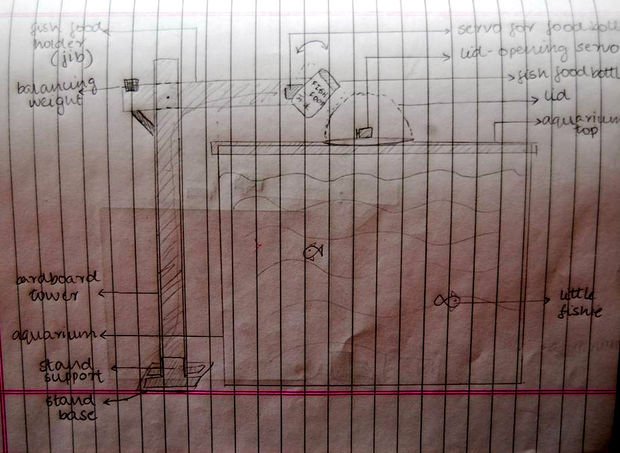 fish food
holder
(jib)
balancing
weight
servo for food bottl
lid-opening servo
fish food bottl
lid
aquarium
top
FISH
FOOD
cardboard
tower
aquarium
stand
support
stand
base
little
fishie